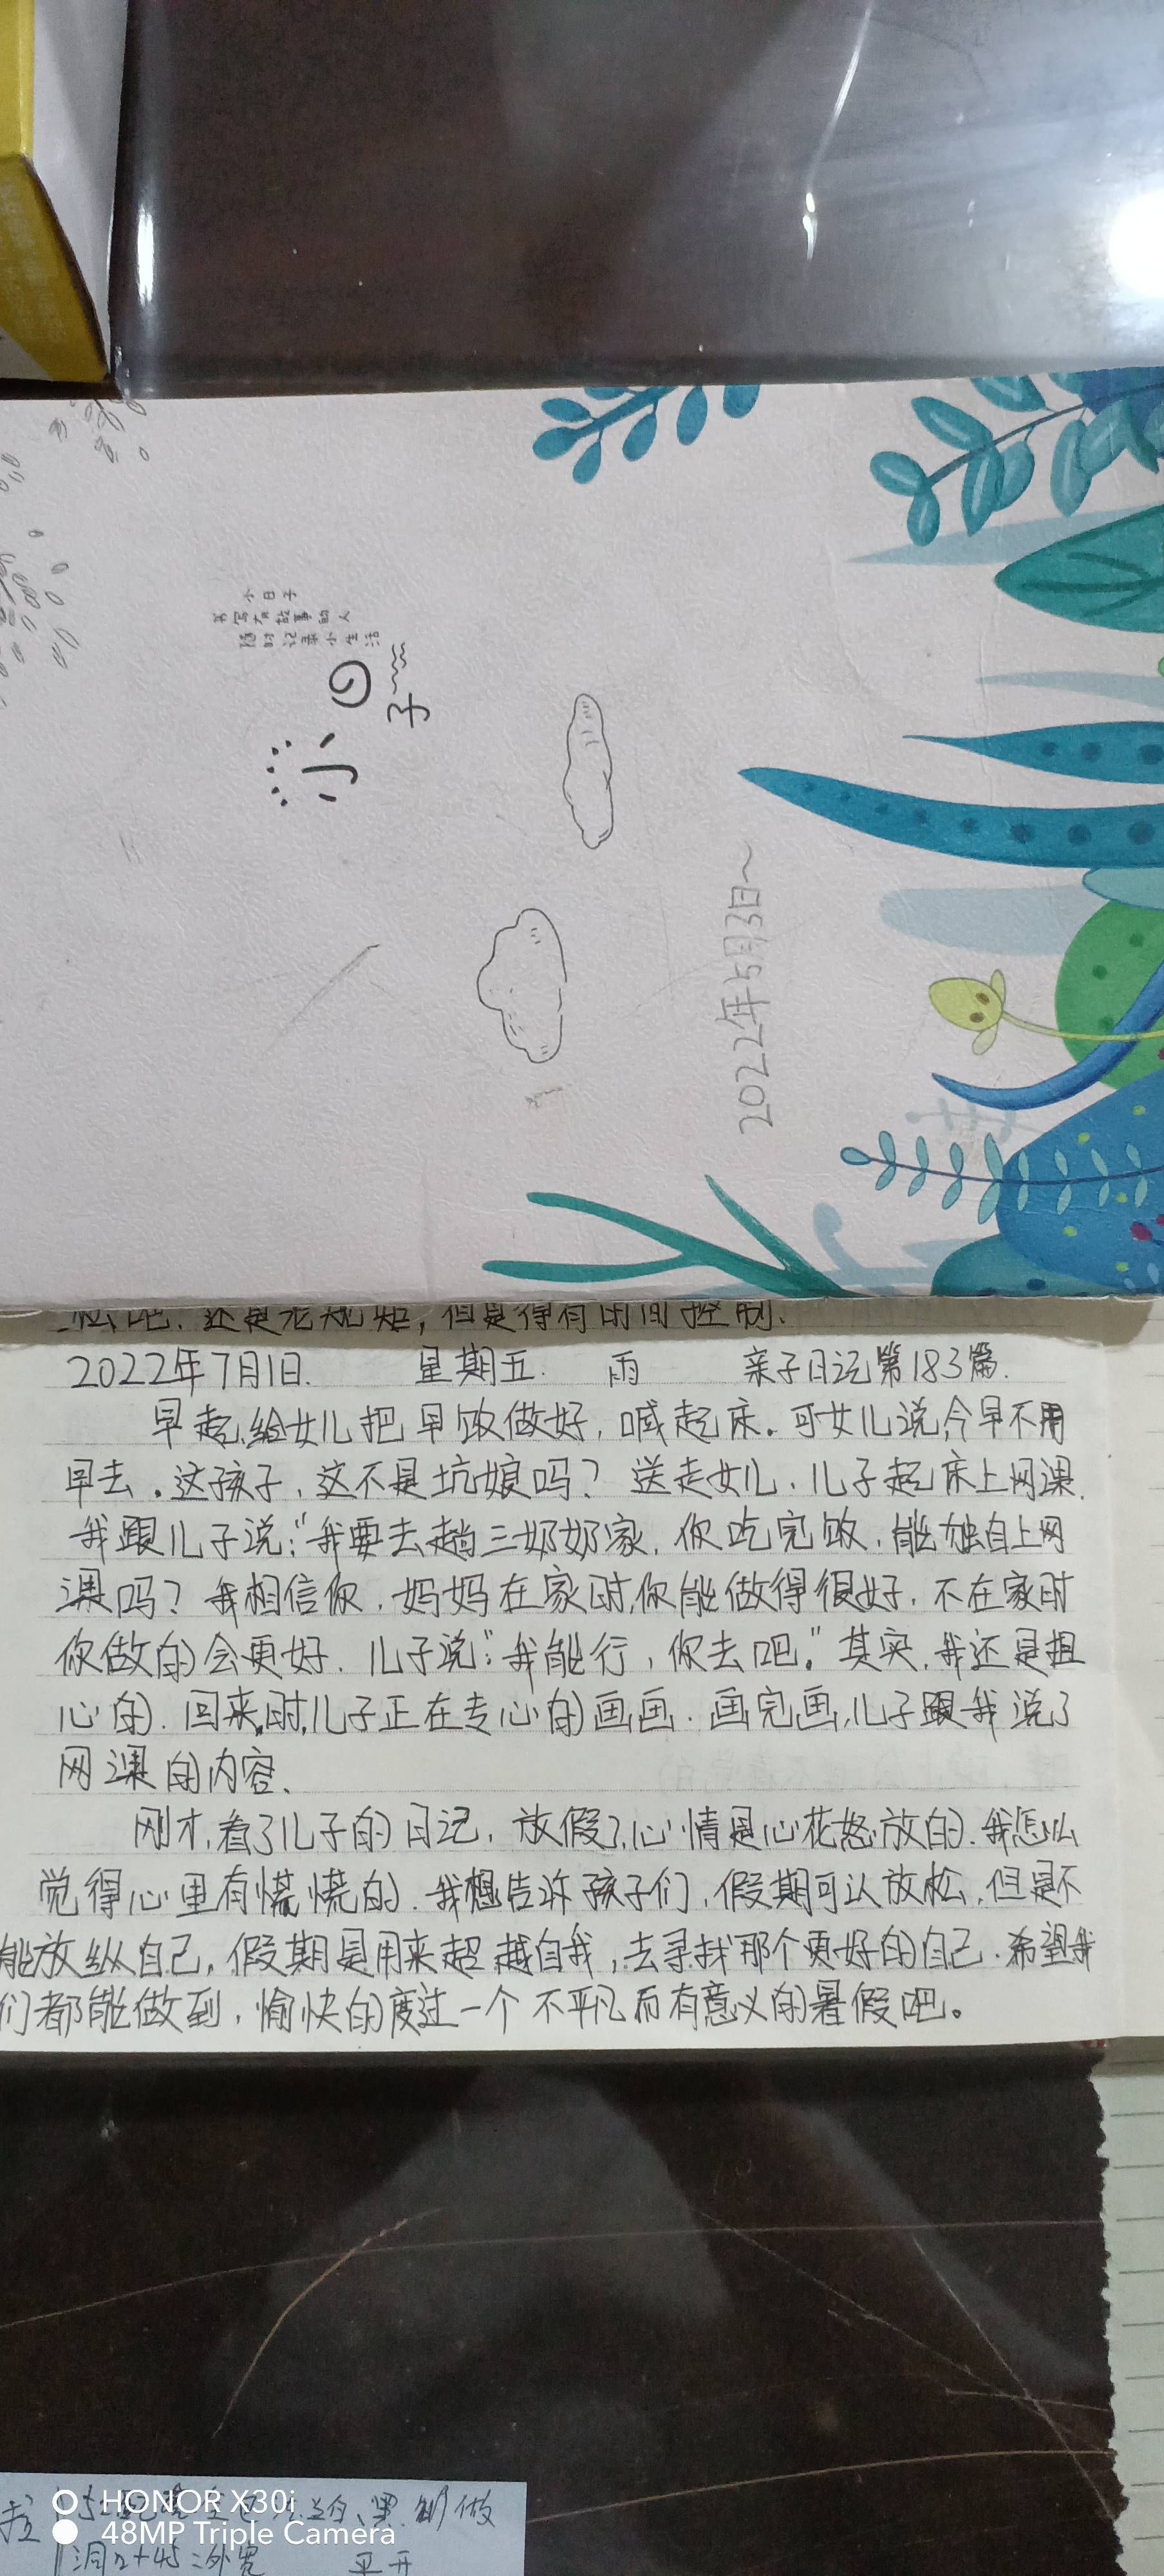 小日子
书写有故事的人
随时记录小生活
小日子
2022年5月3日~
松吧.还是老规矩,但是得有时间控制.
2022年7月1日. 星期五. 雨 亲子日记第183篇.
早起,给女儿把早饭做好,喊起床.可女儿说,今早不用
早去.这孩子,这不是坑娘吗?送走女儿,儿子起床上网课.
我跟儿子说:"我要去趟三奶奶家,你吃完饭,能独自上网
课吗?我相信你,妈妈在家时,你能做得很好,不在家时
你做的会更好.儿子说:"我能行,你去吧."其实,我还是担
心的.回来时,儿子正在专心的画画.画完画,儿子跟我说了
网课的内容.
刚才,看了儿子的日记,放假了,心情是心花怒放的.我怎么
觉得心里有慌慌的.我想告诉孩子们,假期可以放松,但是不
能放纵自己,假期是用来超越自我,去寻找那个更好的自己.希望我
们都能做到,愉快的度过一个不平凡而有意义的暑假吧。
HONOR X30i
48MP Triple Camera